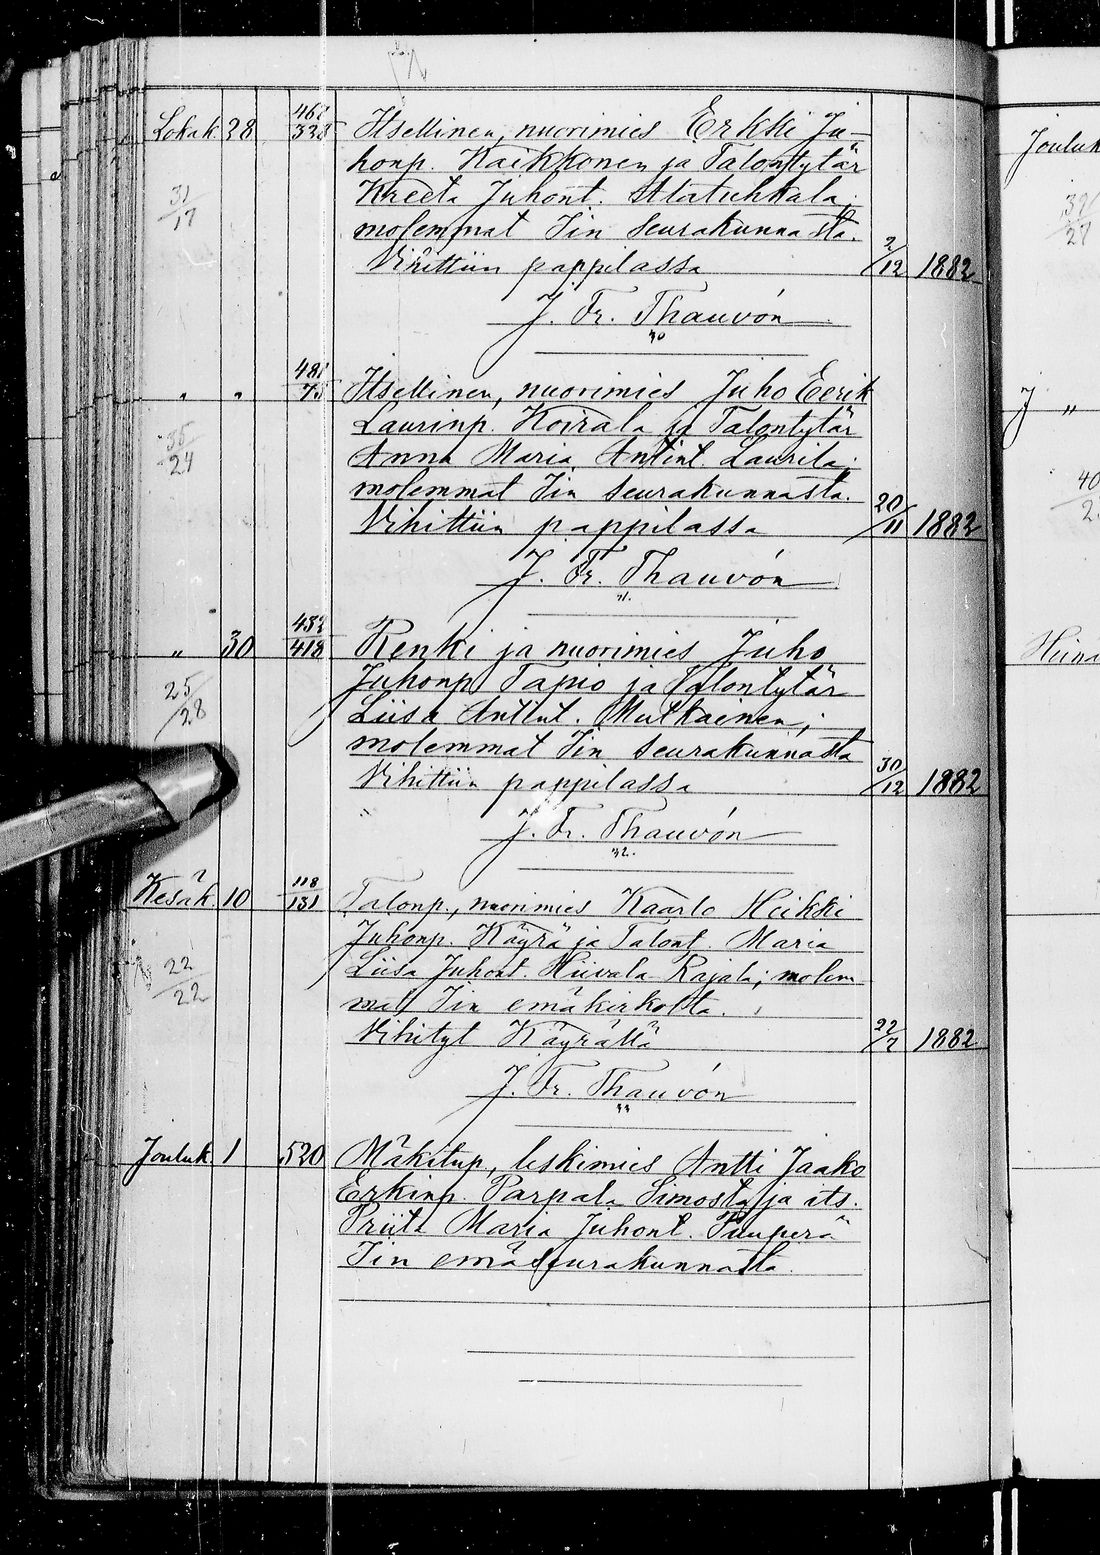 Lokak. 28 338 Itsellinen, nuorimies Erkki Ju-
honp. Kaikkonen ja Talontytär
31/17 Kreeta Juhont. Alatuhkala;
molemmat Iin seurakunnasta.
Vihittiin pappilassa 2/12 1882
J. Fr. Thauvón
30
481/75 Itsellinen, nuorimies Juho Eerik
Laurinp. Koirala ja Talontytär
35/24 Anna Maria Antint. Laurila;
molemmat Iin seurakunnasta.
Vihittiin pappilassa 20/11 1882
J. Fr. Thauvón
31.
" 30 418 Renki ja nuorimies Juho
25/28 Juhonp. Tapio ja Talontytär
Liisa Anttint. Mutkainen;
molemmat Iin seurakunnasta
Vihittiin pappilassa 30/12 1882
J. Fr. Thauvón
32.
Kesäk. 10 118/131 Talonp., nuorimies Kaarlo Heikki
Juhonp. Käyrä ja Talont. Maria
22/22 Liisa Juhont. Hiivala-Rajala; molem
mat Iin emäkirkolta.
Vihityt Käyrällä 22/7 1882
J. Fr. Thauvón
33
Jouluk. 1 520 Mäkitup, leskimies Antti Jaako
Erkinp. Parpala Simosta ja its.
Priita Maria Juhont. Puuperä
Iin emäseurakunnasta.
Jouluk
J "